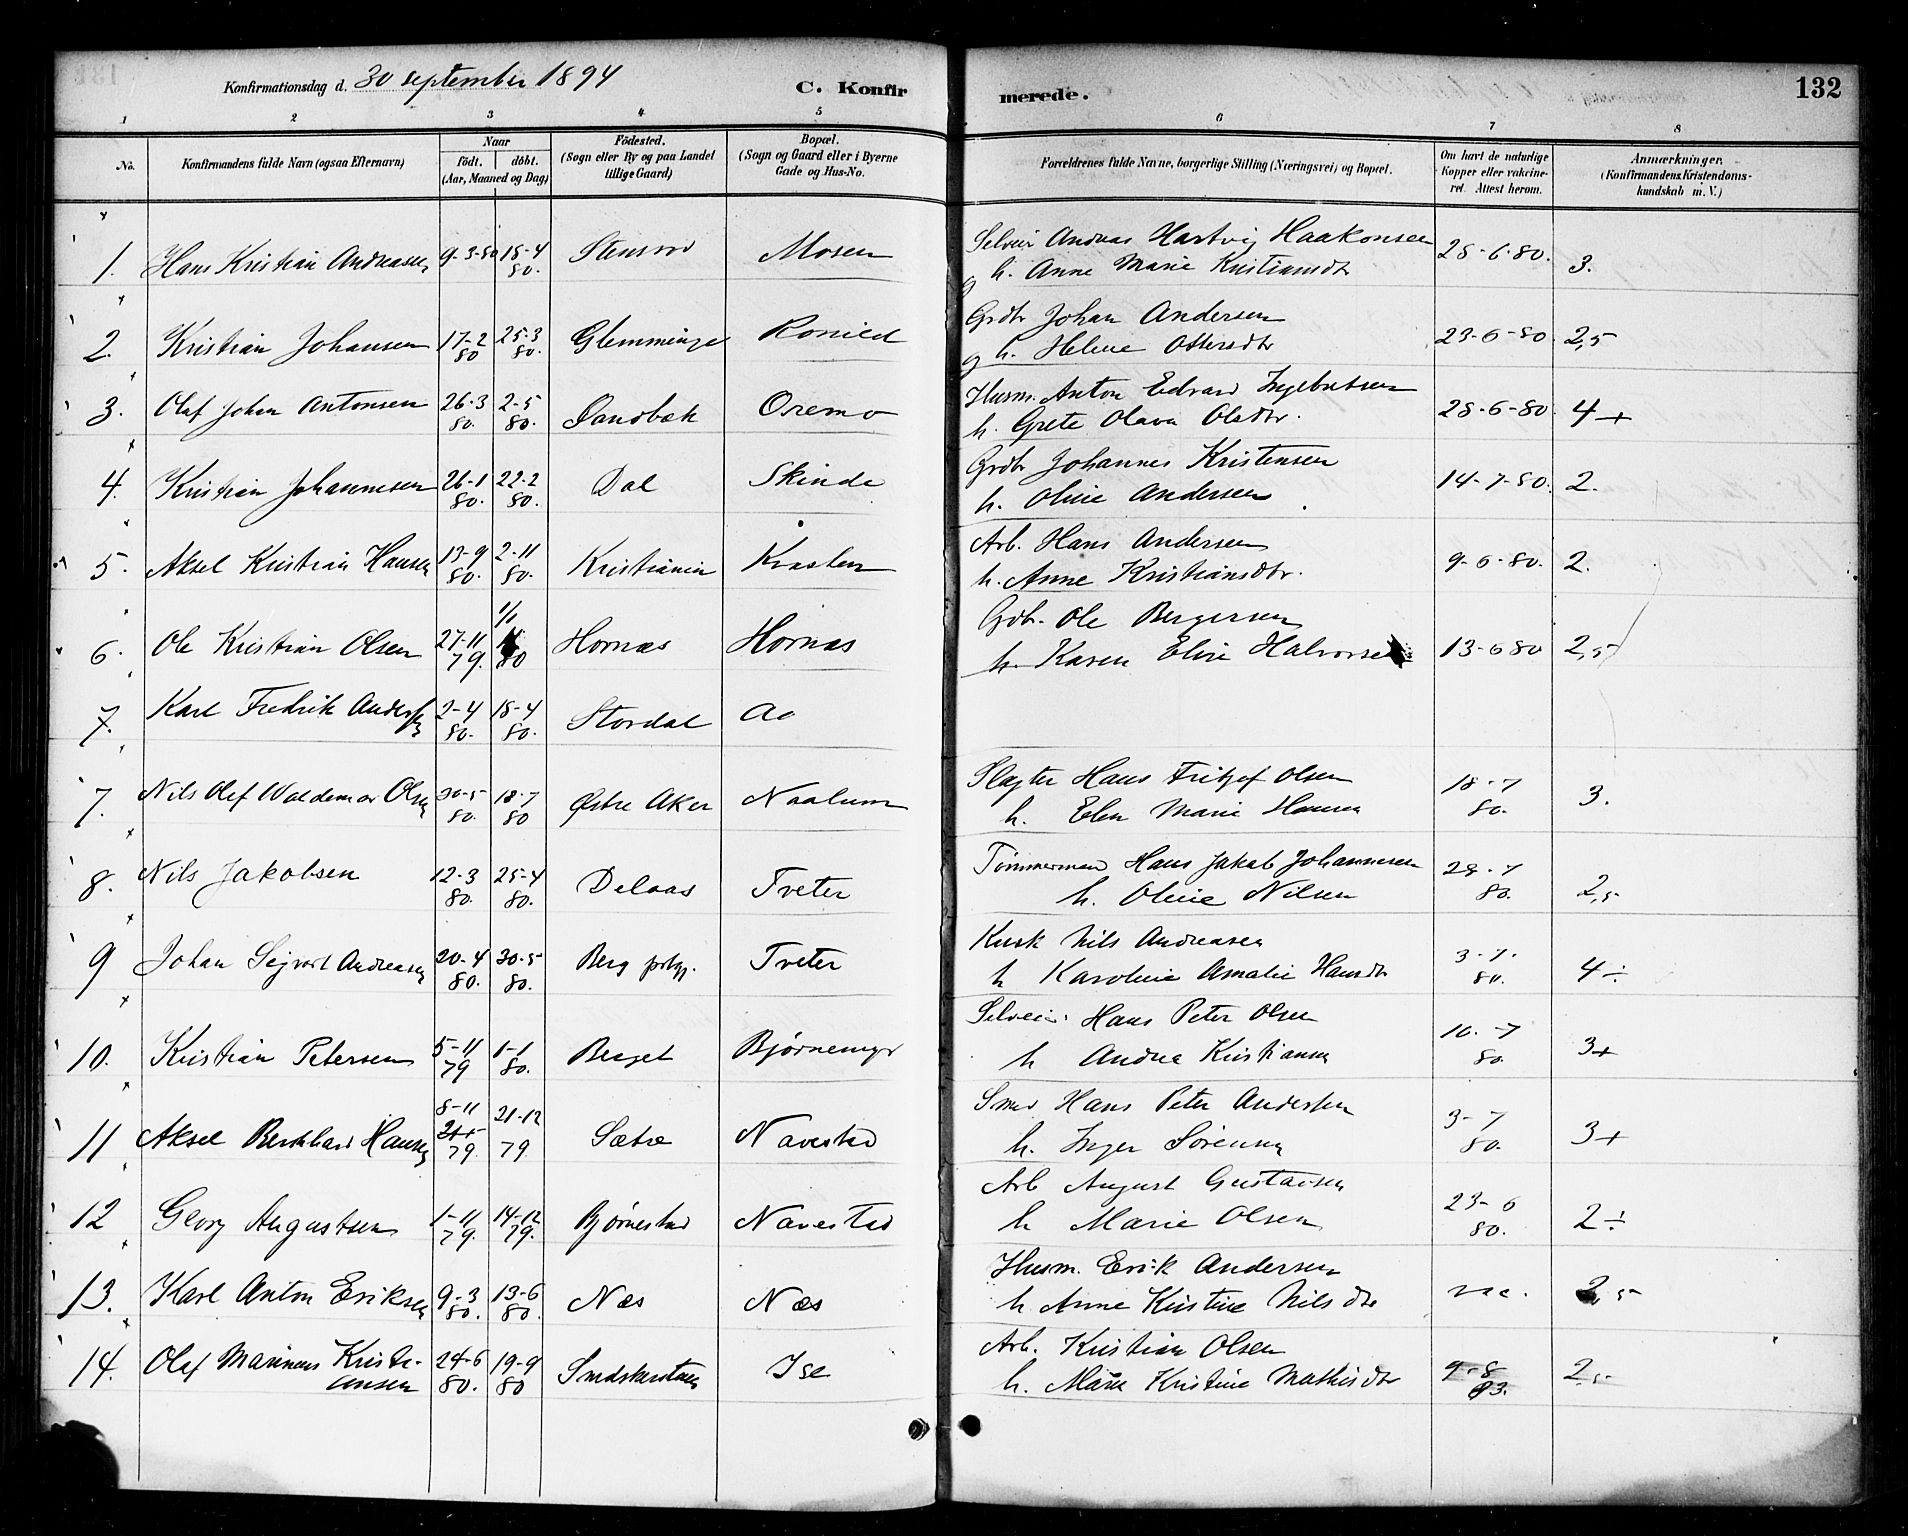 Konfirmationsdag d. 30 september 1894
C. Konfirmerede.
132
1 2 3 4 5 6 7 8
No.
Konfirmandens fulde Navn (ogsaa Efternavn)
Naar
födt. döbt.
(Aar, Maaned og Dag)
Födested.
(Sogn eller By og paa Landet
tillige Gaard)
Bopæl.
(Sogn og Gaard eller i Byerne
Gade og Hus-No.
Forældrenes fulde Navne, borgerlige Stilling (Næringsvei) og Bopæl.
Om havt de naturlige
Kopper eller vakcine-
ret. Attest herom.
Anmærkninger.
(Konfirmandens Kristendoms-
kundskab m. V.)
1. Hans Kristian Andreasen 9-3-80 18-4 80. Stensrød Mosen Selveier Andreas Hartvig Haakonsen
og h. Anne Marie Kristiansdtr 28-6-80. 3.
2. Kristian Johansen 17-2 80 25-3 80. Glemminge Ronild Grdbr Johan Andersen
og h. Helene Ottersdtr 23-6-80 2,5
3. Olaf Johan Antonsen 26-3 80. 2-5 80. Sandbæk Oremo Husm. Anton Edvard Ingebretsen
h. Grete Olava Olsdtr. 28-6-80 4+
4. Kristian Johannesen 26-1 80. 22-2 80. Dal Skinde Grdbr Johannes Kristensen
h. Oline Andersen 14-7-80. 2.
5. Aksel Kristian Hansen 13-9 80. 2-11 80. Kristiania Arb. Hans Andersen
h. Anne Kristiansdtr. 9-6-80. 2.
6. Ole Kristian Olsen 27-11 79. 1/1 80 Hornæs Hornæs Gdbr. Ole Bergersen
h. Karen Elise Halvorsen 13-6 80 2,5
7. Karl Fredrik Andersen 2-4 80. 18-4 80. Stordal Aa
7. Nils Olef Waldemar Olsen 30-5 80. 18-7 80 Østre Aker Naalum Slagter Hans Fritjof Olsen
h. Elen Marie Hansen 18-7 80. 3.
8. Nils Jakobsen 12-3 80. 25-4 80. Delaas Tveter Tømmermand Hans Jakob Johannesen
h. Oline Nilsen 29-7 80. 2,5
9 Johan Sigvart Andreasen 20-4 80. 30-5 80. Berg prstgj. Tveter Kusk Nils Andreasen
h Karoline Amalie Hansdtr 3-7. 80. 4÷
10. Kristian Petersen 5-11 79 1-1 80. Berget Bjørnemyr Selveier Hans Peter Olsen
h Andrea Kristiansen 10.-7 80. 3+
11 Aksel Bernhard Hansen 8-11 79. 21-12 79 Sætre Navestad Smed Hans Peter Andersen
h. Inger Sørensen 3-7 80. 3+
12 Georg Augustsen 1-11 79. 14-12 79. Bjørnestad Navestad Arb August Gustavsen
h Marie Olsen 23-6 80. 2÷
13. Karl Anton Eriksen 9-3 80. 13-6 80. Næs Næs Husm. Erik Andersen
h Anne Kristine Nilsdtr vac. 2,5
14. Olaf Marinius Kristi-
ansen 24-6 80. 19-9 80 Ise Arb. Kristian Olsen
h. Marie Kristine Mathisdtr 9-8 93. 2,5